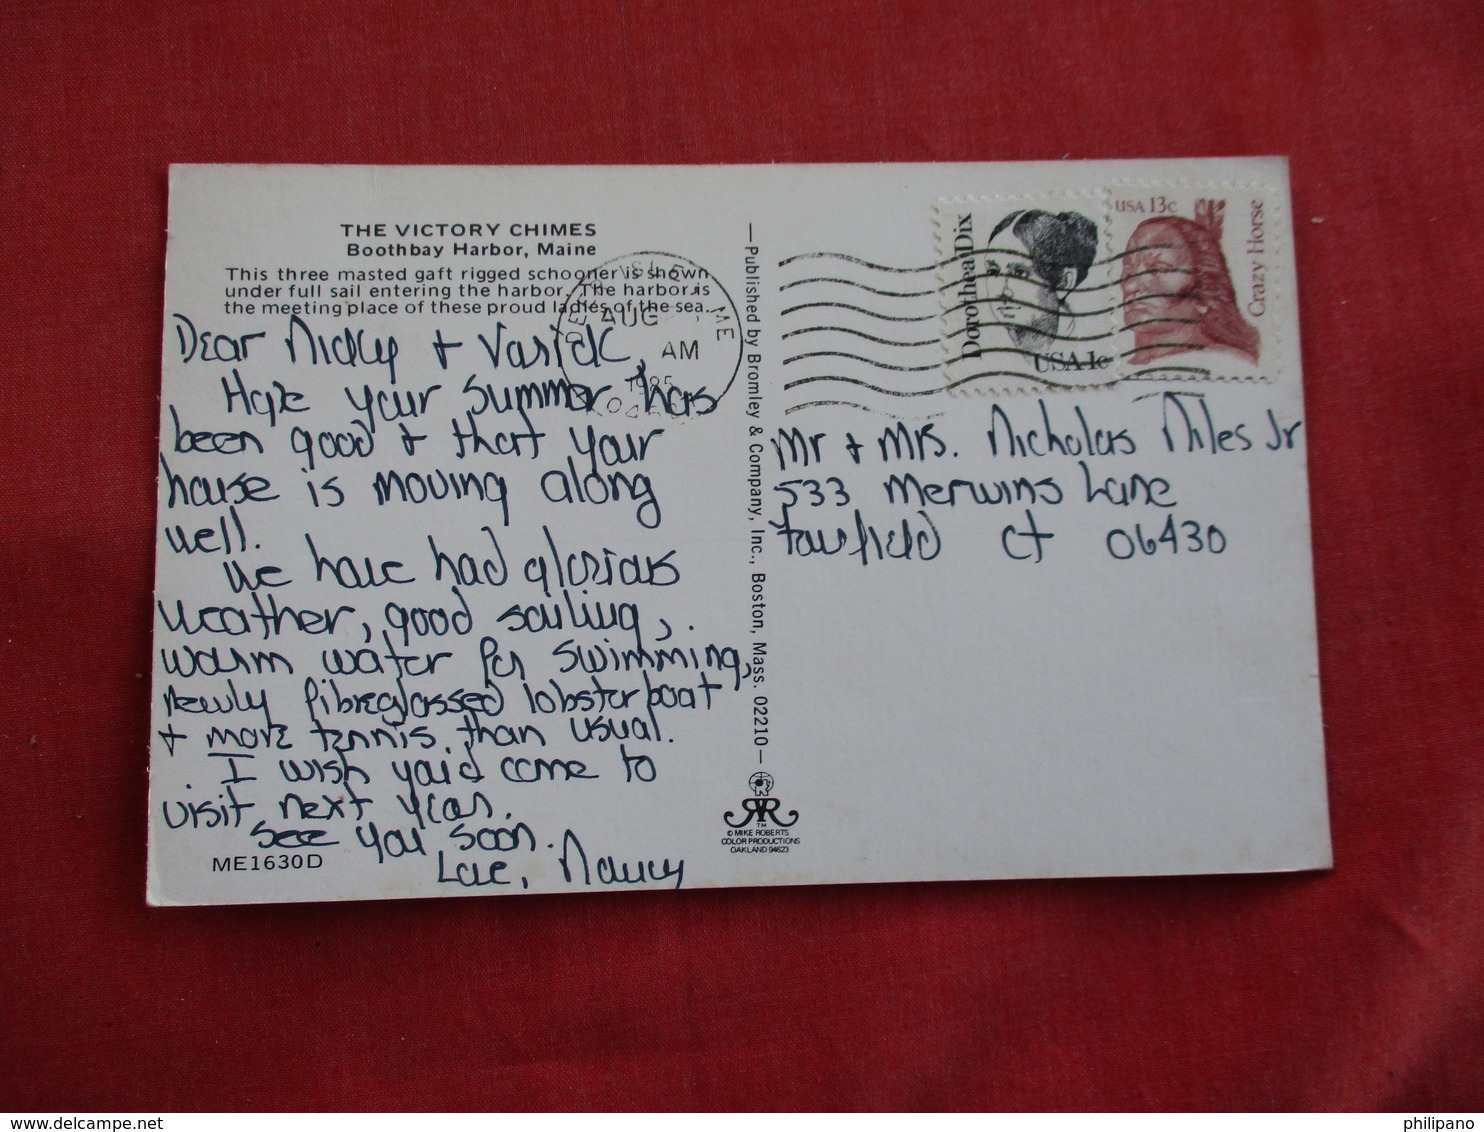 THE VICTORY CHIMES
Boothbay Harbor, Maine
This three masted gaft rigged schooner is shown
under full sail entering the harbor. The harbor is
the meeting place of these proud ladies of the sea.
Dear Nicky + Varick,
Hope your summer has
been good + that your
house is moving along
well.
We have had glorious
weather, good sailing,
warm water for swimming,
newly fibreglassed lobster boat
+ more tennis than usual.
I wish you'd come to
visit next year.
See you soon.
Love, Nancy
ME1630D
—Published by Bromley & Company, Inc., Boston, Mass. 02210—
TM
© MIKE ROBERTS
COLOR PRODUCTIONS
OAKLAND 94623
ISLE
ME
AUG
AM
1985
Dorothea Dix
USA 1c
USA 13c
Crazy Horse
Mr + Mrs. Nicholas Niles Jr
533 Merwins Lane
Fairfield Ct 06430
delcampe.net
philipano